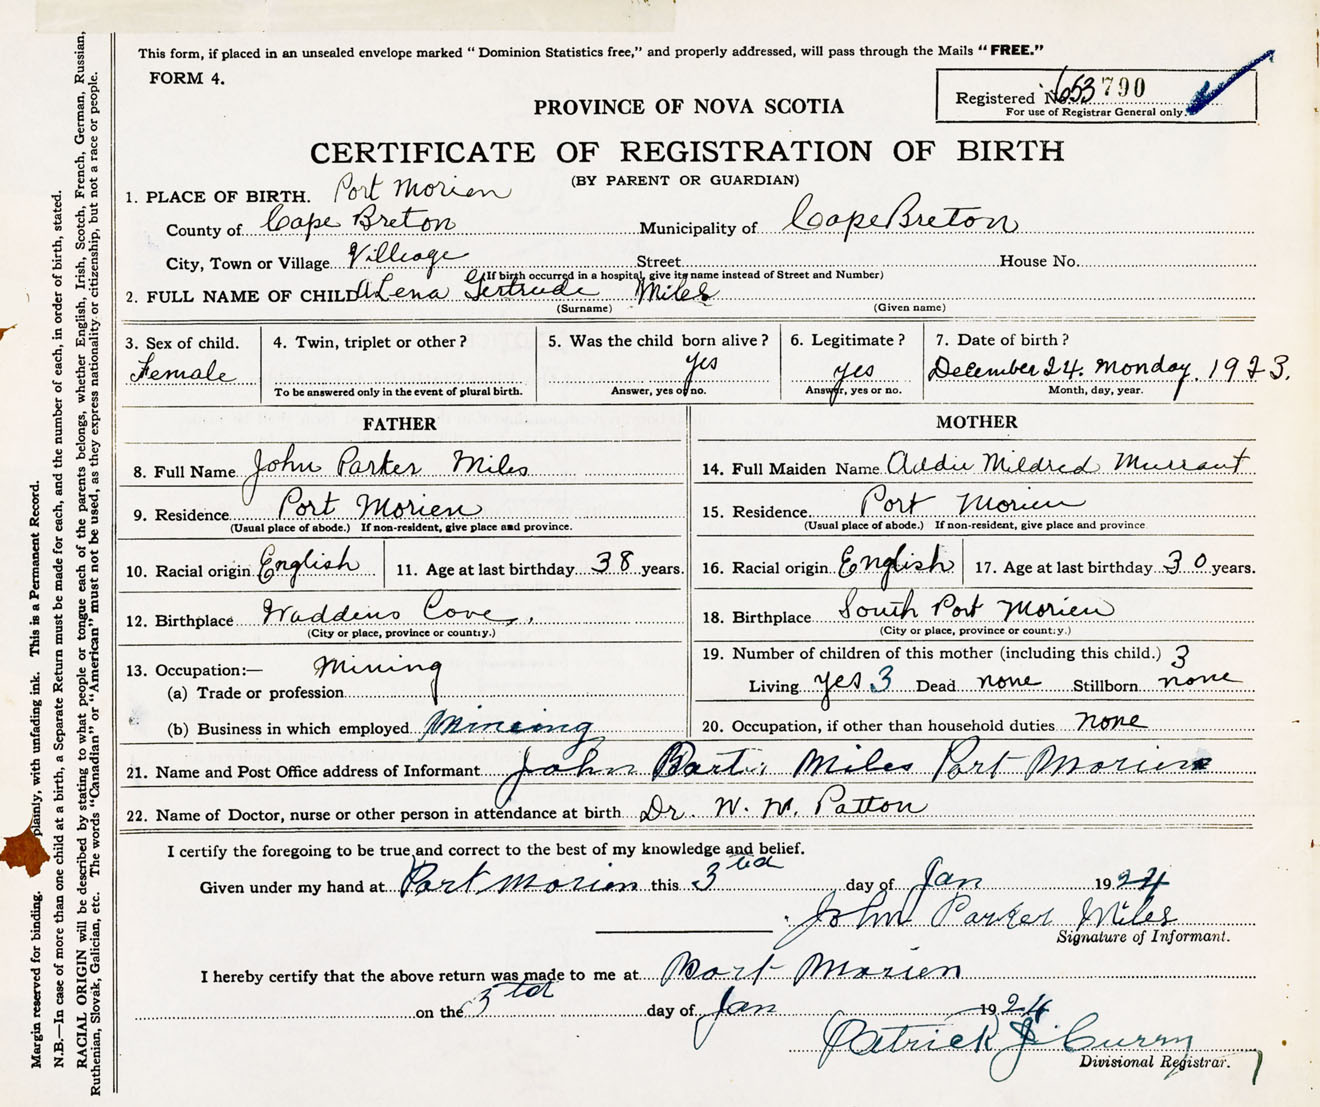 This form, if placed in an unsealed envelope marked "Dominion Statistics free," and properly addressed, will pass through the Mails "FREE."
FORM 4.
Registered No. 653790
For use of Registrar General only.
PROVINCE OF NOVA SCOTIA
CERTIFICATE OF REGISTRATION OF BIRTH
(BY PARENT OR GUARDIAN)
1. PLACE OF BIRTH. Port Morien
County of Cape Breton Municipality of Cape Breton
City, Town or Village Villeage Street House No.
(If birth occurred in a hospital, give its name instead of Street and Number)
2. FULL NAME OF CHILD Alena Gertrude Miles
(Surname) (Given name)
3. Sex of child. 4. Twin, triplet or other? 5. Was the child born alive? 6. Legitimate? 7. Date of birth?
Female yes yes December 24. Monday. 1923.
To be answered only in the event of plural birth. Answer, yes or no. Answer, yes or no. Month, day, year.
FATHER MOTHER
8. Full Name John Parker Miles 14. Full Maiden Name Addie Mildred Murrant
9. Residence Port Morien 15. Residence Port Morien
(Usual place of abode.) If non-resident, give place and province. (Usual place of abode.) If non-resident, give place and province
10. Racial origin English 11. Age at last birthday 38 years. 16. Racial origin English 17. Age at last birthday 30 years.
12. Birthplace Waddens Cove. 18. Birthplace South Port Morien
(City or place, province or county.) (City or place, province or county.)
13. Occupation:— Mining 19. Number of children of this mother (including this child.) 3
(a) Trade or profession Living yes 3 Dead none Stillborn none
(b) Business in which employed Mineing 20. Occupation, if other than household duties none
21. Name and Post Office address of Informant John Miles Port Morien
22. Name of Doctor, nurse or other person in attendance at birth Dr. W. W. Patton
I certify the foregoing to be true and correct to the best of my knowledge and belief.
Given under my hand at Port Morien this 3 day of Jan 1924
John Parker Miles
Signature of Informant.
I hereby certify that the above return was made to me at Port Morien
on the 3 day of Jan 1924
Patrick J Curry
Divisional Registrar.
Margin reserved for binding. plainly, with unfading ink. This is a Permanent Record.
N.B.—In case of more than one child at a birth, a Separate Return must be made for each, and the number of each, in order of birth, stated.
RACIAL ORIGIN will be described by stating to what people or tongue each of the parents belongs, whether English, Irish, Scotch, French, German, Russian,
Ruthenian, Slovak, Galician, etc. The words "Canadian" or "American" must not be used, as they express nationality or citizenship, but not a race or people.